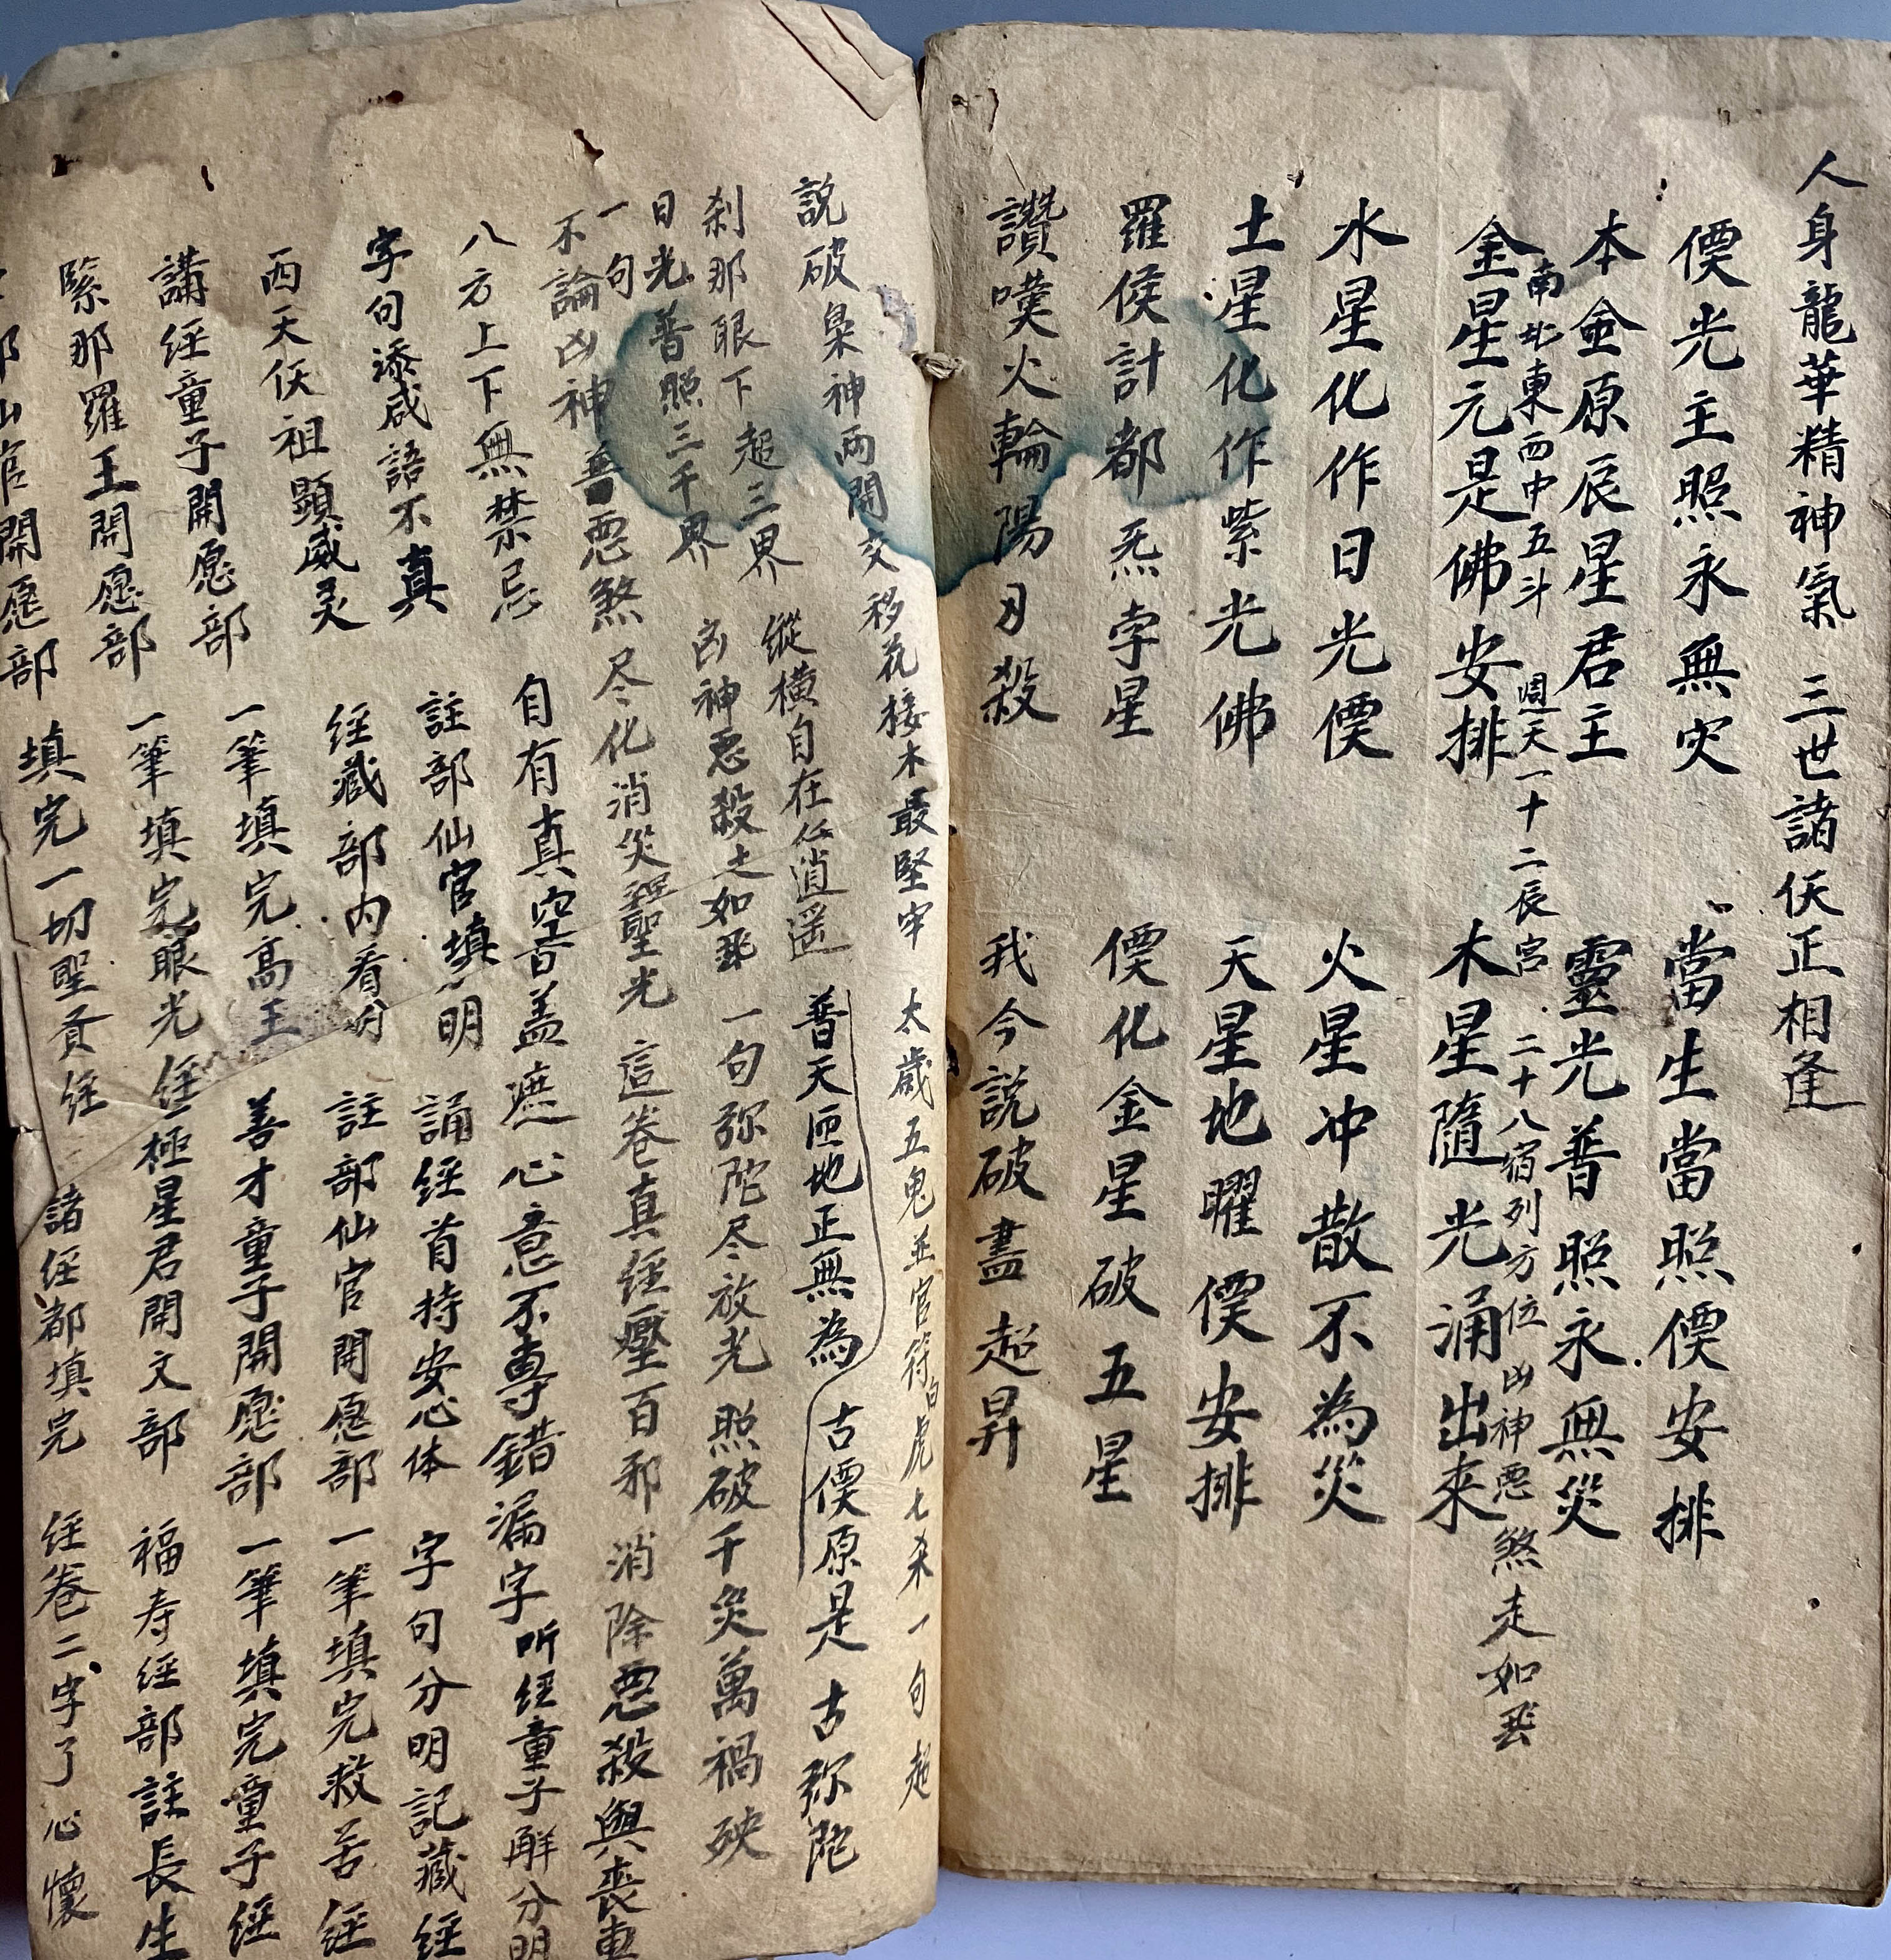 人身龍華精神氣 三世諸仸正相逢
僾光主照永無灾 當生當照僾安排
本命原辰星君主 靈光普照永無災
南北東西中五斗 週天一十二辰宮 二十八宿列方位 凶神惡煞走如飛
金星元是佛安排 木星隨光涌出來
水星化作日光僾 火星冲散不為災
土星化作紫光佛 天星地曜僾安排
羅侯計都炁孛星 僾化金星破五星
讚嘆火輪陽月殺 我今説破盡超昇
太歲五鬼並官符白虎七杀一句超
説破梟神兩開交 移花接木最堅牢
普天匝地正無為 古僾原是古弥陀
刹那眼下超三界 縱橫自在仏逍遥
日光普照三千界 凶神惡殺走如飛 一句弥陀尽放光 照破千灾萬禍殃
一句
不論凶神善惡煞 尽化消災聖光 這卷真経壓百邪 消除惡殺與喪車
八方上下無禁忌 自有真空音盖遮 心意不專錯漏字 听経童子解分明
字句添咸語不真 註部仙官填明 誦経首持安心体 字句分明記藏経
西天仸祖顕威灵 経藏部内看明 註部仙官開愿部 一筆填完救苦経
講経童子開愿部 一筆填完高王 善才童子開愿部 一筆填完童子経
緊那羅王開愿部 一筆填完眼光経 極星君開文部 福寿経部註長生
部仙官開愿部 填完一切聖賢経 諸経都填完 経卷二字了心懷